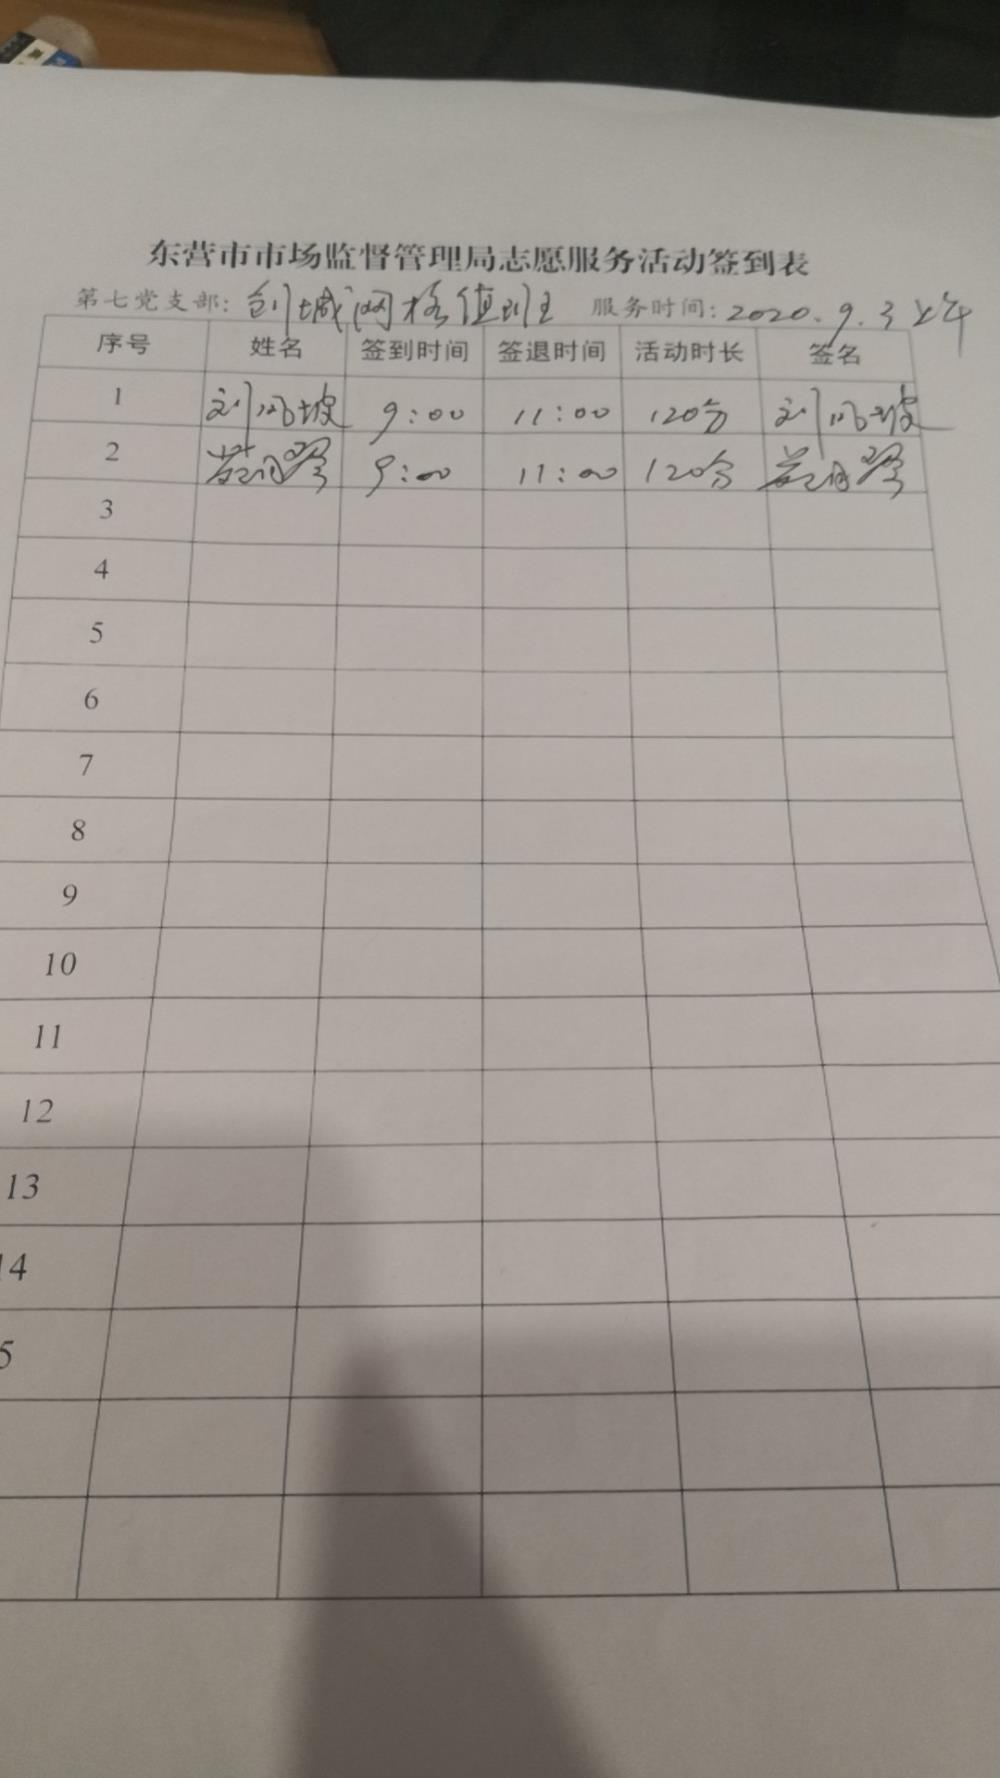 东营市市场监督管理局志愿服务活动签到表
第七党支部: 创城网格值班 服务时间: 2020.9.3上午
序号 姓名 签到时间 签退时间 活动时长 签名
1 刘风坡 9:00 11:00 120分 刘风坡
2 9:00 11:00 120分
3
4
5
6
7
8
9
10
11
12
13
14
5